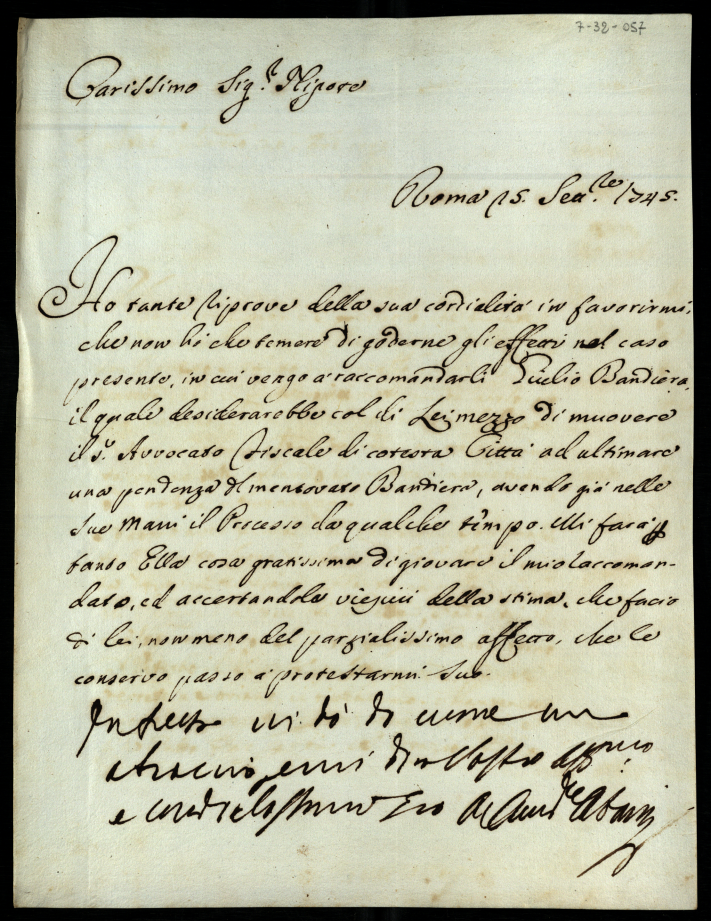 7-32-057
Carissimo Sig.r Nipote
Roma 25. Sett.re 1745.
Ho tante riprove della sua cordialità in favorirmi,
che non hò che temere di goderne gli effetti nel caso
presente, in cui vengo a raccomandarli Giulio Bandiera,
il quale desiderarebbe col di Lei mezzo di muovere
il S.r Avvocato Fiscale di cotesta Città ad ultimare
una pendenza del mentovato Bandiera, avendo già nelle
sue mani il Processo da qualche tempo. Mi farà per
tanto Ella cosa gratissima di giovare il mio raccoman-
dato, ed accertandola viepiù della stima, che facio
di lei, non meno del parzialissimo affetto, che le
conservo passo a protestarmi suo
di cuore un
e mi Vostro aff.mo
e cordialissimo Zio